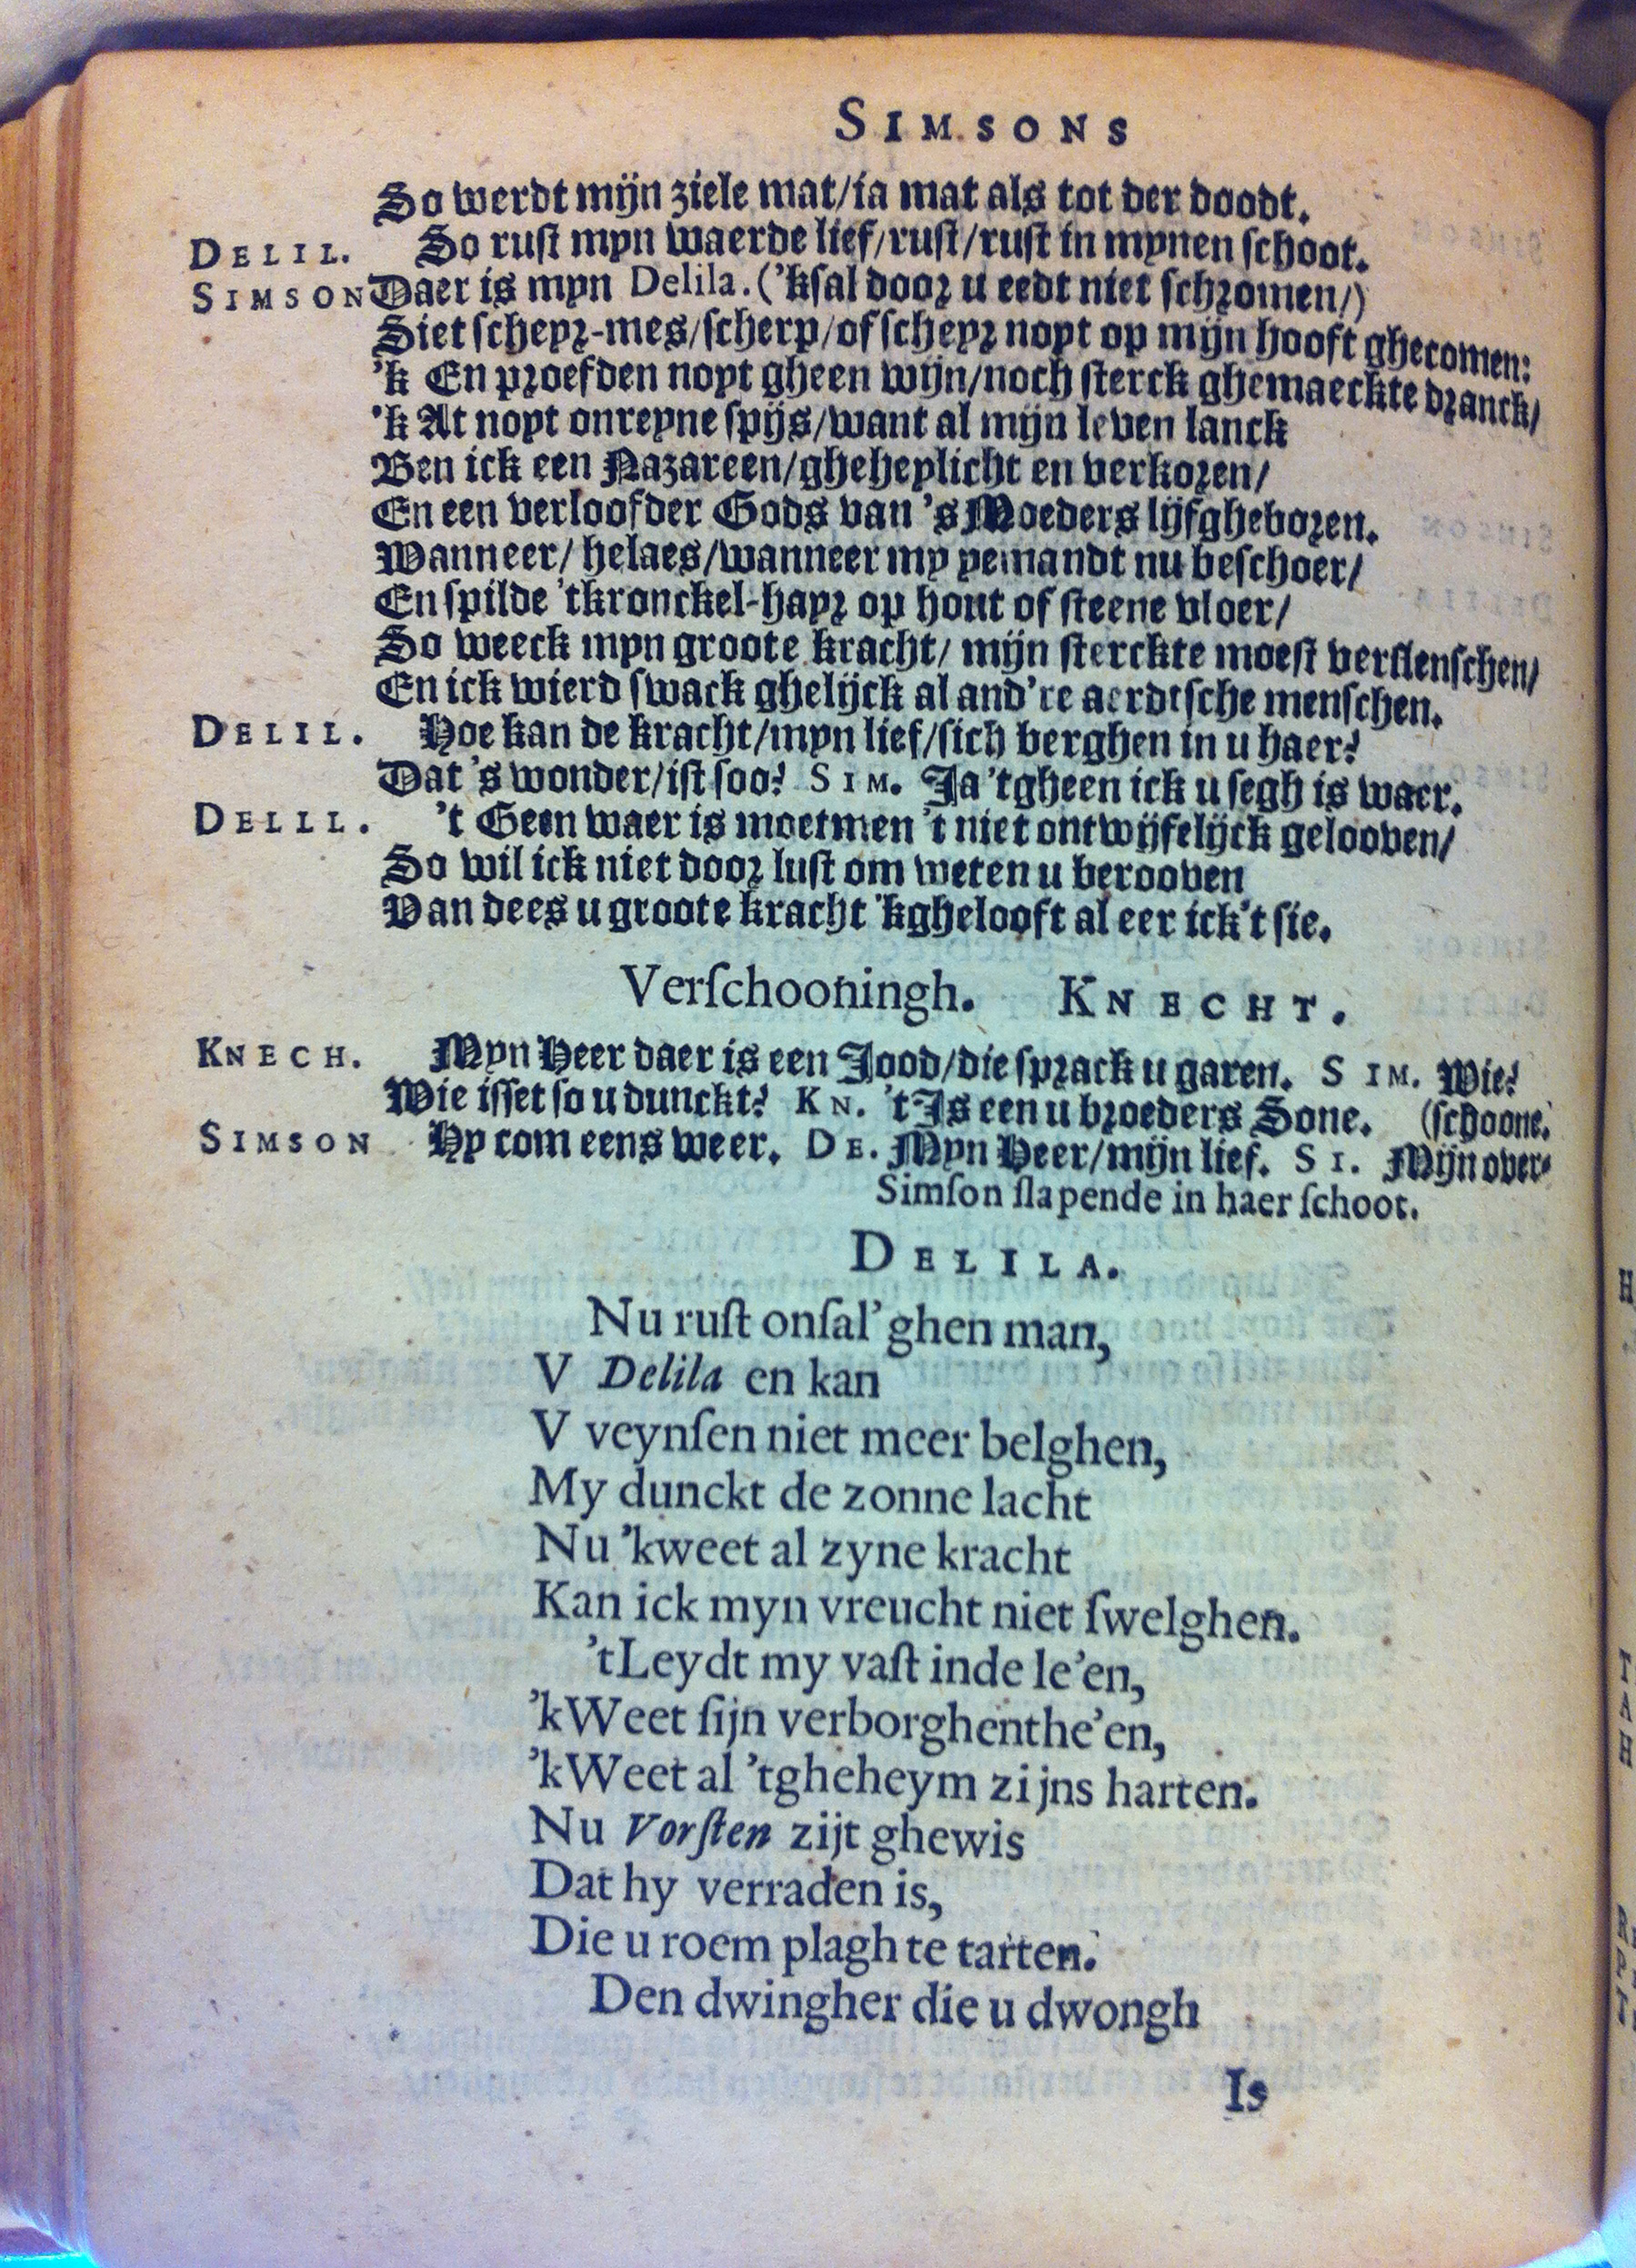 SIMSONS
So werdt mijn ziele mat/ia mat als tot der doodt.
DELIL. So rust myn waerde lief/rust/rust in mynen schoot.
SIMSON Daer is myn Delila. ('ksal door u eedt niet schromen/)
Siet scheyr-mes/scherp/of scheyr noyt op mijn hooft ghecomen:
'k En proefden noyt gheen wijn/noch sterck ghemaeckte dranck/
'k At noyt onreyne spijs/want al mijn leven lanck
Ben ick een Nazareen/gheheylicht en verkoren/
En een verloofder Gods van 's Moeders lijf gheboren.
Wanneer/ helaes/wanneer my yemandt nu beschoer/
En spilde 'tkronckel-hayr op hout of steene vloer/
So weeck myn groote kracht/ mijn sterckte moest verslenschen/
En ick wierd swack ghelijck al and're aerdtsche menschen.
DELIL. Hoe kan de kracht/myn lief/sich berghen in u haer?
Dat 's wonder/ist soo? SIM. Ja 'tgheen ick u segh is waer.
DELLL. 't Geen waer is moetmen 't niet ontwijfelijck gelooven/
So wil ick niet door lust om weten u berooven
Van dees u groote kracht 'kghelooft al eer ick't sie.
Verſchooningh. KNECHT.
KNECH. Myn Heer daer is een Jood/die sprack u garen. SIM. Wie?
Wie isset so u dunckt? KN. 't Is een u broeders Sone. (schoone.
SIMSON Hy com eens weer. DE. Myn Heer/mijn lief. SI. Mijn over-
Simſon ſlapende in haer ſchoot.
DELILA.
Nu ruſt onſal'ghen man,
V Delila en kan
V veynſen niet meer belghen,
My dunckt de zonne lacht
Nu 'kweet al zyne kracht
Kan ick myn vreucht niet ſwelghen.
'tLeydt my vaſt inde le'en,
'kWeet ſijn verborghenthe'en,
'kWeet al 'tgheheym zijns harten.
Nu Vorſten zijt ghewis
Dat hy verraden is,
Die u roem plagh te tarten.
Den dwingher die u dwongh
Is